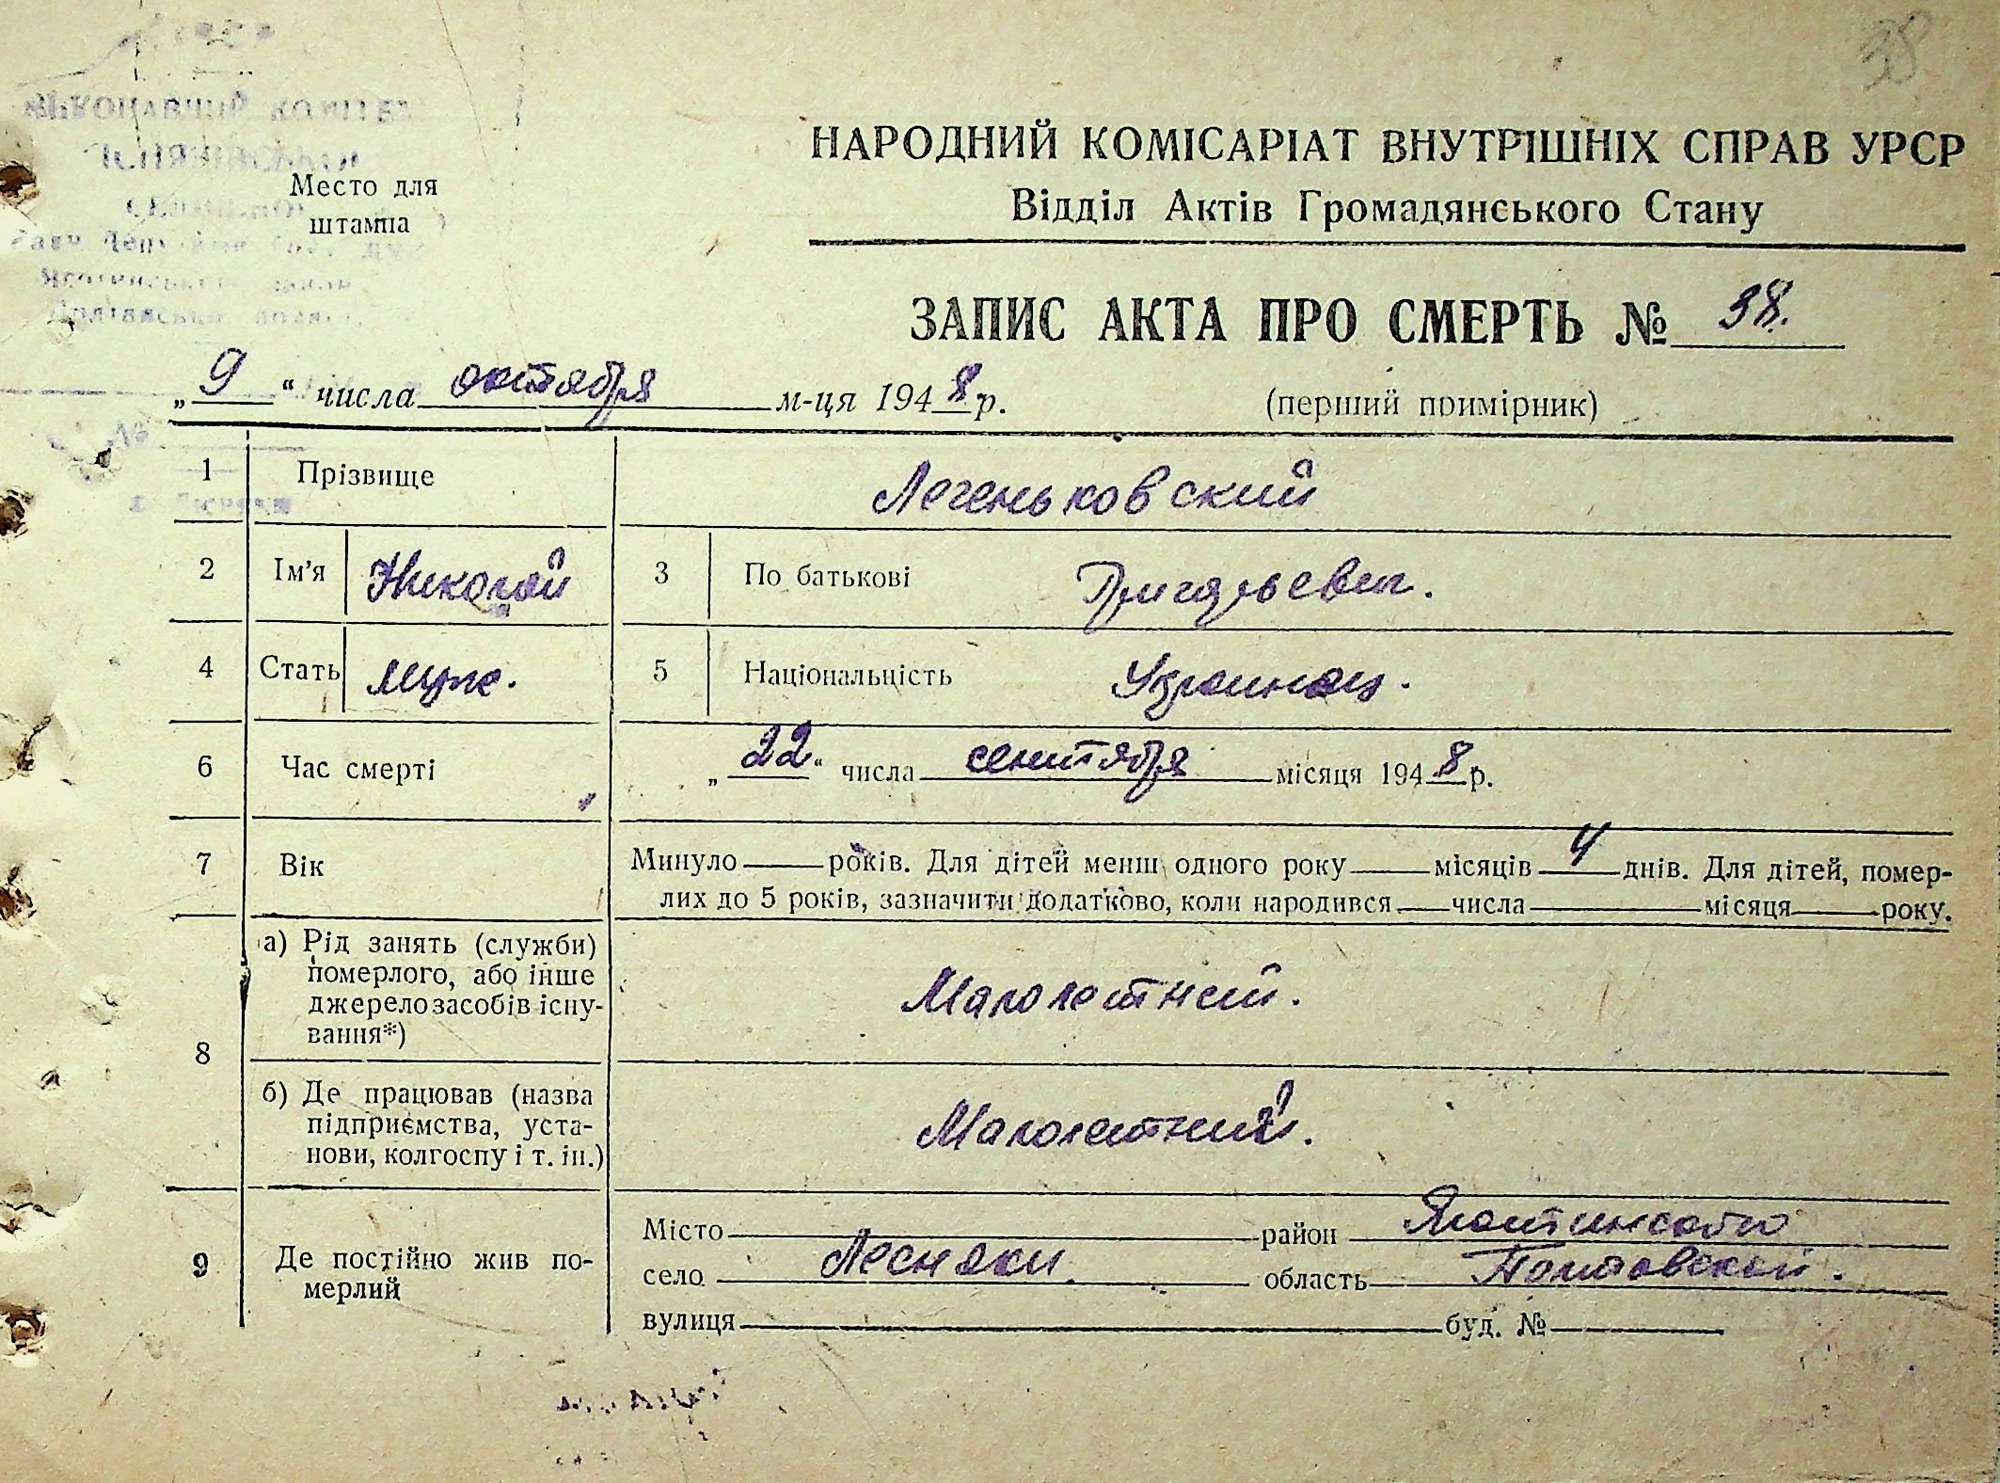 38
ВИКОНАВЧИЙ КОМІТЕТ
Место для
штампа
НАРОДНИЙ КОМІСАРІАТ ВНУТРІШНІХ СПРАВ УРСР
Відділ Актів Громадянського Стану
ЗАПИС АКТА ПРО СМЕРТЬ № 38.
„9“ числа октября м-ця 1948 р. (перший примірник)
1 Прізвище Легеньковский
2 Ім'я Николай 3 По батькові Григорьевич.
4 Стать муж. 5 Національність Украинец.
6 Час смерті „22“ числа сентября місяця 1948 р.
7 Вік Минуло років. Для дітей менш одного року місяців 4 днів. Для дітей, помер-
лих до 5 років, зазначити додатково, коли народився числа місяця року.
8 а) Рід занять (служби)
померлого, або інше
джерело засобів існу-
вання*)
Малолетний.
б) Де працював (назва
підприємства, уста-
нови, колгоспу і т. ін.)
Малолетний.
9 Де постійно жив по-
мерлий
Місто район Яготинского
село Лесняки область Полтавской.
вулиця буд. №